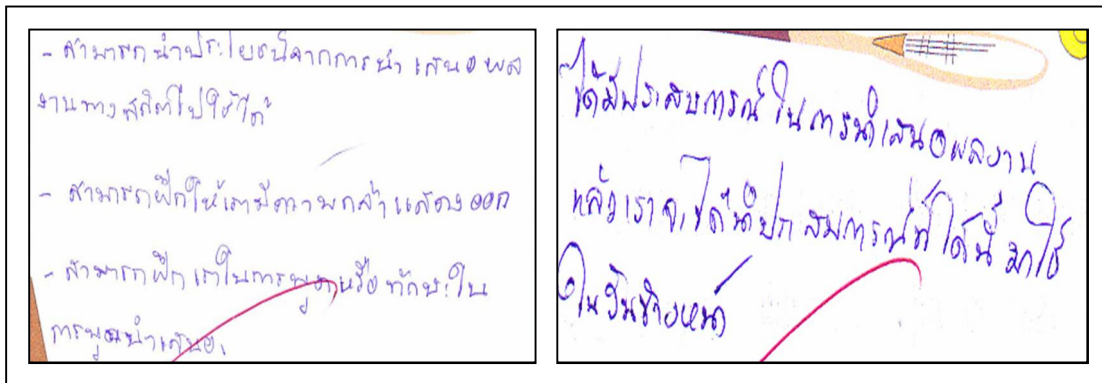 - สามารถนำประโยชน์จากการนำเสนอผล
งานทางสถิติไปใช้ได้
- สามารถฝึกให้เรามีความกล้าแสดงออก
- สามารถฝึกเราในการพูดหรือทักษะใน
การพูดนำเสนอ
ได้มีประสบการณ์ในการนำเสนอผลงาน
แล้วเราจะได้นำประสบการณ์ที่ได้นี้มาใช้
ในวันข้างหน้า